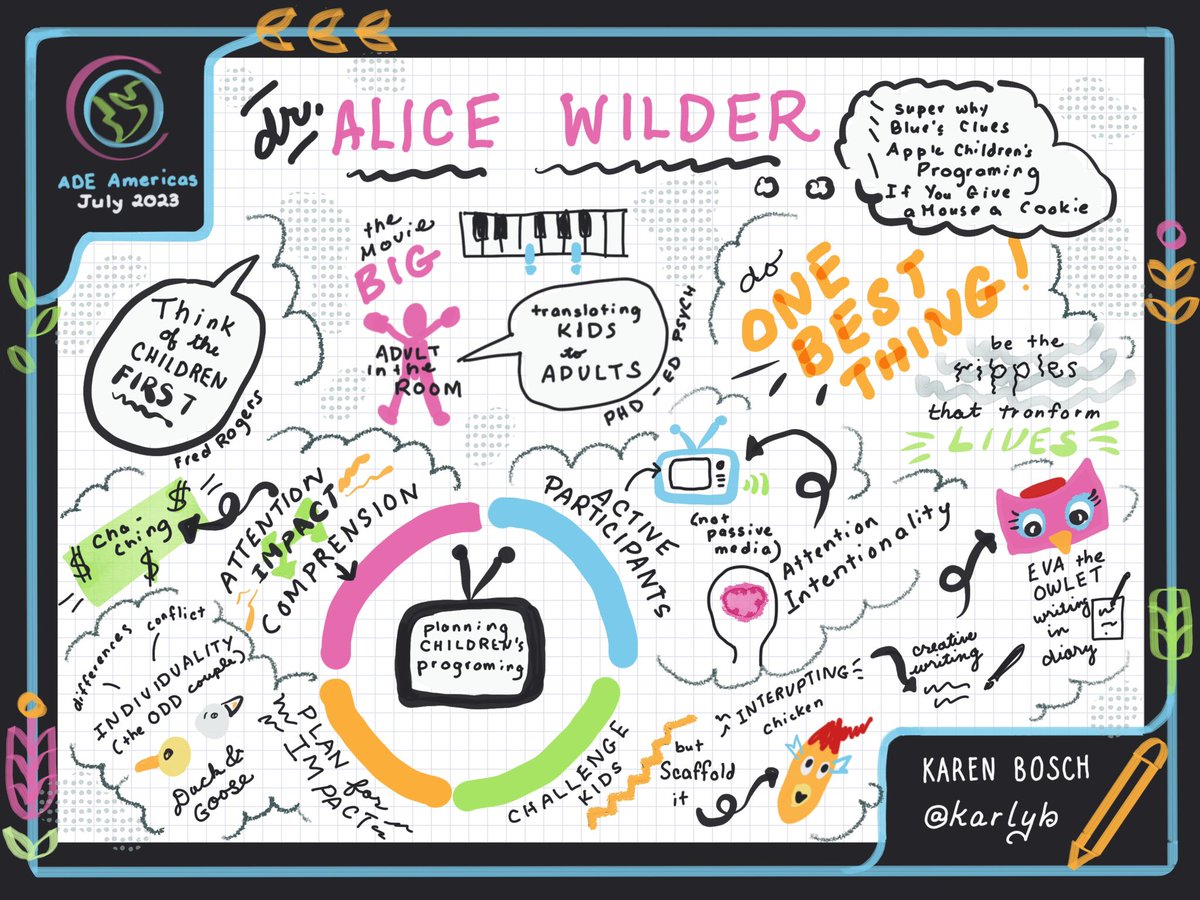 ADE Americas
July 2023
dr. ALICE WILDER
super why
Blue's Clues
Apple Children's
Programing
If You Give
a Mouse a Cookie
Think
of the
CHILDREN
FIRST
Fred Rogers
the
Movie
BIG
ADULT
in the
ROOM
translating
KIDS
to
ADULTS
PHD - ED PSYCH
do
ONE
BEST
THING!
be the
ripples
that tranform
LIVES
$
cha-
ching
$
$
ATTENTION
IMPACT
COMPRENSION
ACTIVE
PARTICIPANTS
(not
passive
media)
Attention
Intentionality
EVA the
OWLET
writing
in
diary
creative
writing
planning
CHILDREN's
programing
differences conflict
INDIVIDUALITY
(the ODD couple)
Duck &
Goose
PLAN for
IMPACT
CHALLENGE
KIDS
but
Scaffold
it
INTERUPTING
chicken
KAREN BOSCH
@karlyb